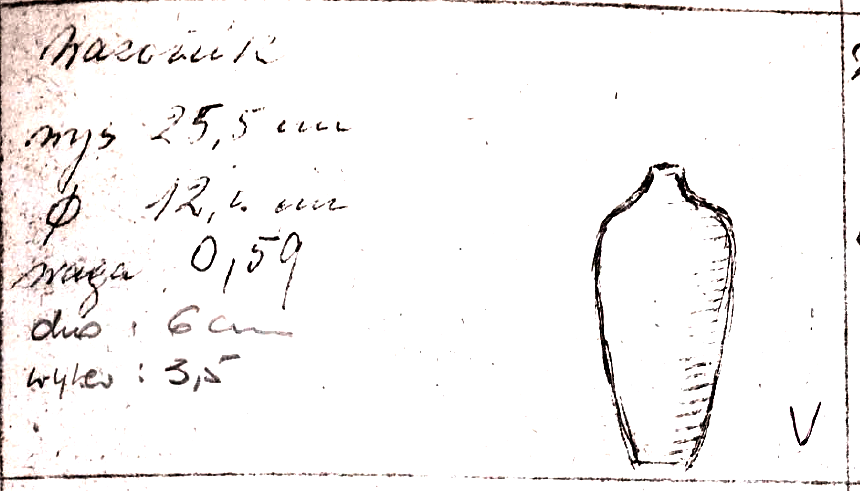 Wazonik
wys 25,5 cm
ϕ 12,5 cm
waga 0,59
dno : 6 cm
wylew : 3,5
V